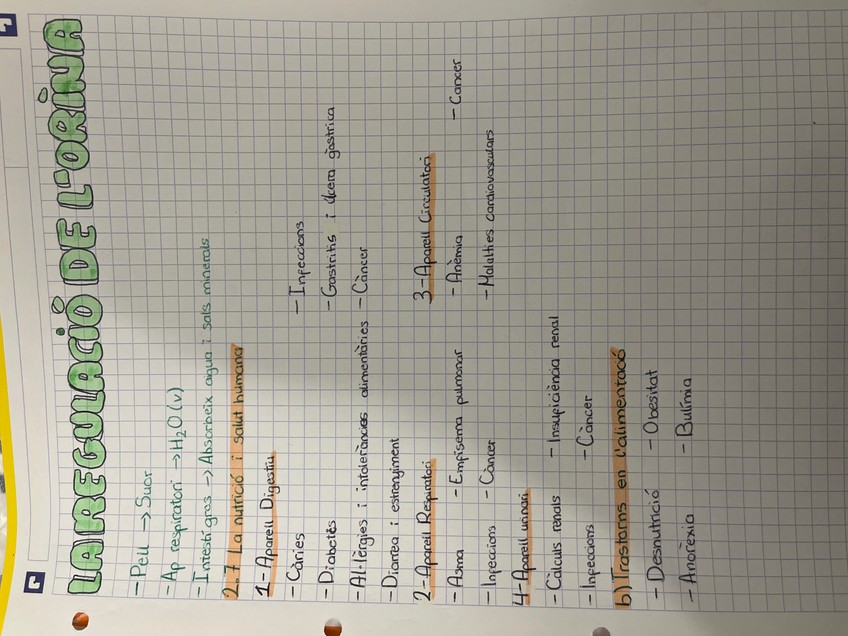 LA REGULACIÓ DE L'ORINA
- Pell → Suor
- Ap respiratori → H2O (v)
- Intestí gros → Absorbeix aigua i sals minerals
2.7 La nutrició i salut humana
1- Aparell Digestiu
- Càries - Infeccions
- Diabetés - Gastritis i úlcera gàstrica
- Al·lèrgies i intoleràncies alimentàries - Càncer
- Diarrea i estrenyiment
2- Aparell Respiratori 3- Aparell Circulatori
- Asma - Emfisema pulmonar - Anèmia - Cancer
- Infeccions - Càncer - Malalties cardiovasculars
4- Aparell urinari
- Càlculs renals - Insuficiència renal
- Infeccions - Càncer
b) Trastorns en l'alimentació
- Desnutrició - Obesitat
- Anorèxia - Bulímia